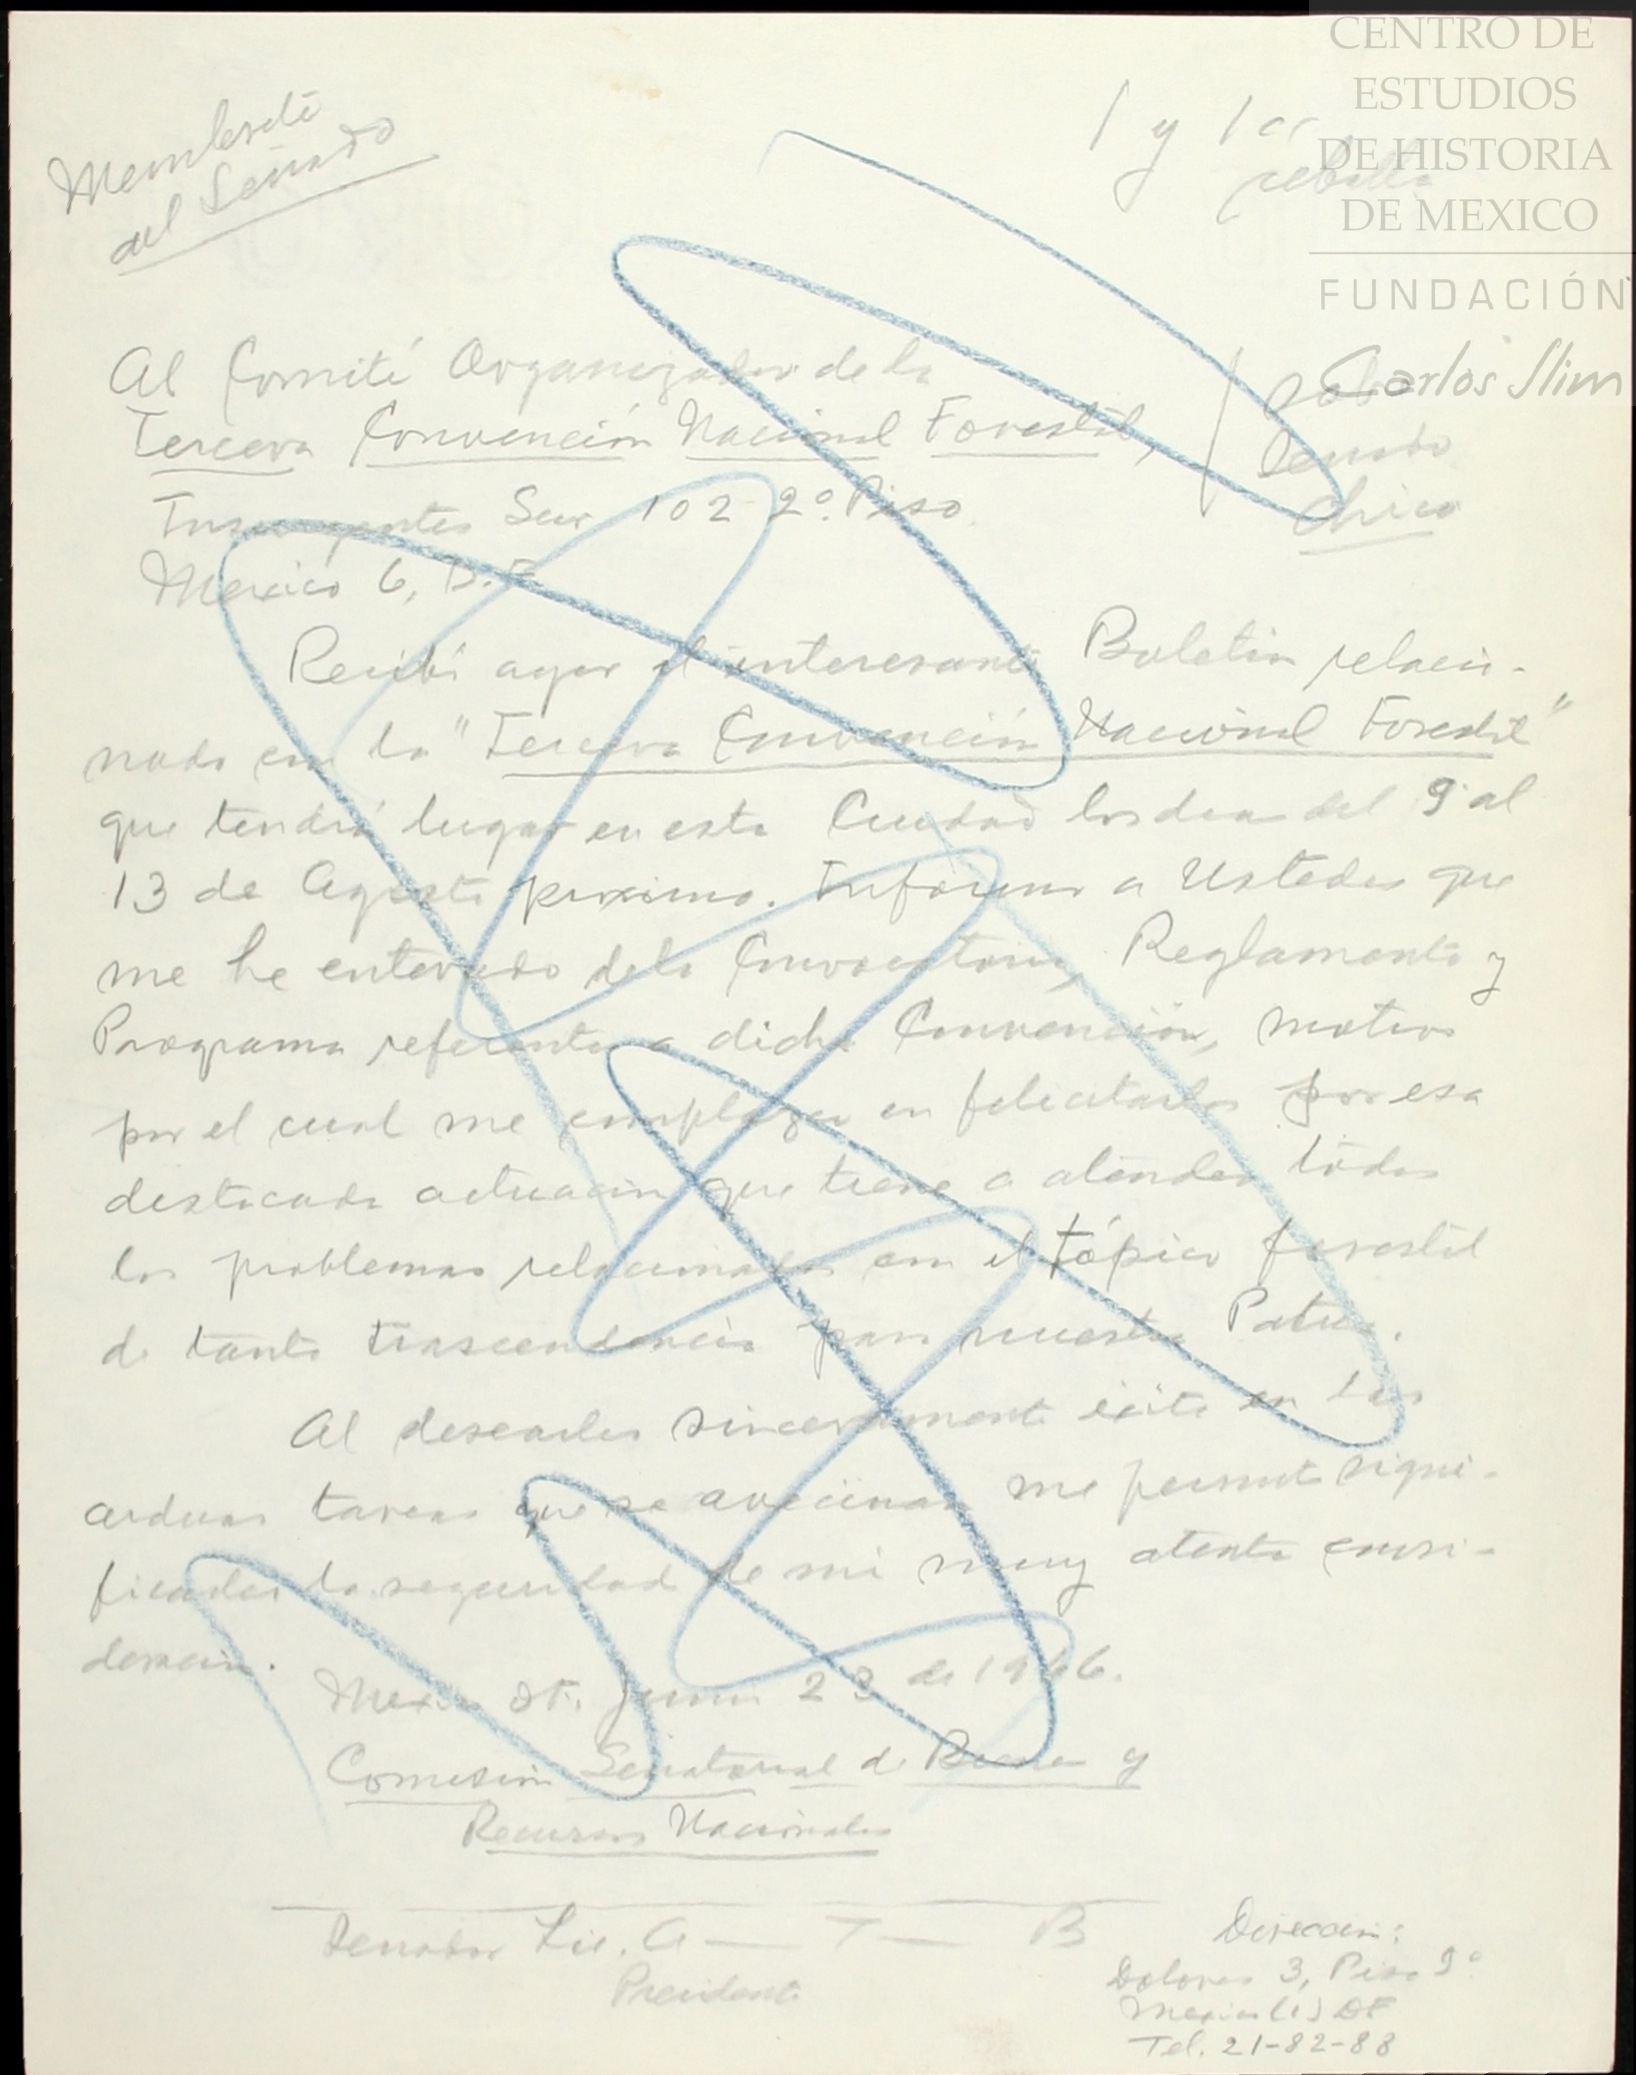 CENTRO DE
ESTUDIOS
DE HISTORIA
DE MEXICO
FUNDACIÓN
Carlos Slim
Membrete
del Senado
1 y 1
Al Comité Organizador de la
Tercera Convención Nacional Forestal,
Insurgentes Sur 102-2º. Piso
Mexico 6, D.F.
Sobre
Senado
Chico
Recibí ayer el interesante Boletin relacio-
nado con la "Tercera Convención Nacional Forestal"
que tendrá lugar en esta Ciudad los dias del 9 al
13 de Agosto proximo. Informo a Ustedes que
me he enterado de la Convocatoria, Reglamento y
Programa referente a dicha Convención, motivo
por el cual me complazco en felicitarles por esa
destacada actuacion que tiene a atender todos
los problemas relacionados con el tópico forestal
de tanta trascendencia para nuestra Patria.
Al desearles sinceramente éxito en las
arduas tareas que se avecinan me permito signi-
ficarles la seguridad de mi muy atenta consi-
deracion.
Mexico DF. Junio 23 de 1966.
Comision Senatorial de Bienes y
Recursos Nacionales
Senador Lic. A— T— B
Presidente
Direccion:
Dolores 3, Piso 9º
Mexico (1) DF
Tel. 21-82-88